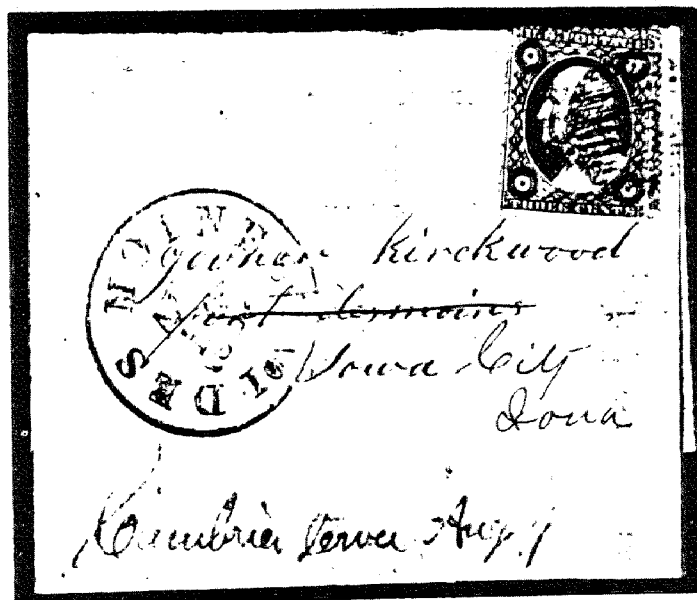 THREE CENTS
DES MOINES
govnor Kirckwood
fort desmoins
Iowa City
Iowa
Cumbria Iowa Aug 7